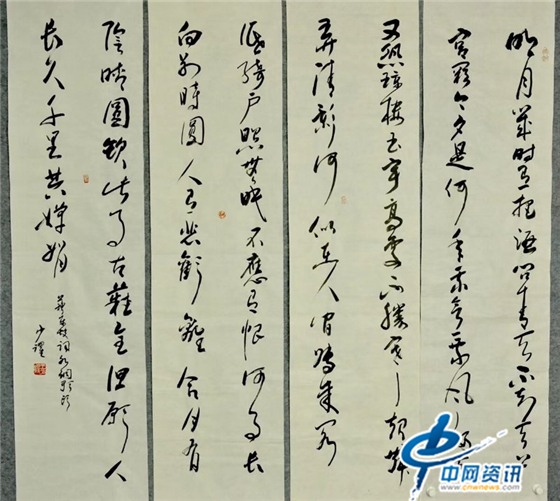 明月幾时有把酒问青天不知天上
宫阙今夕是何年我欲乘风归
又恐琼楼玉宇高处不勝寒起舞
弄清影何似在人间转朱阁
低绮户照無眠不應有恨何事長
向别時圆人有悲歡離合月有
陰晴圆缺此事古難全但願人
長久千里共嬋娟
苏東坡词水调歌头
中网资讯
www.cnwnews.com